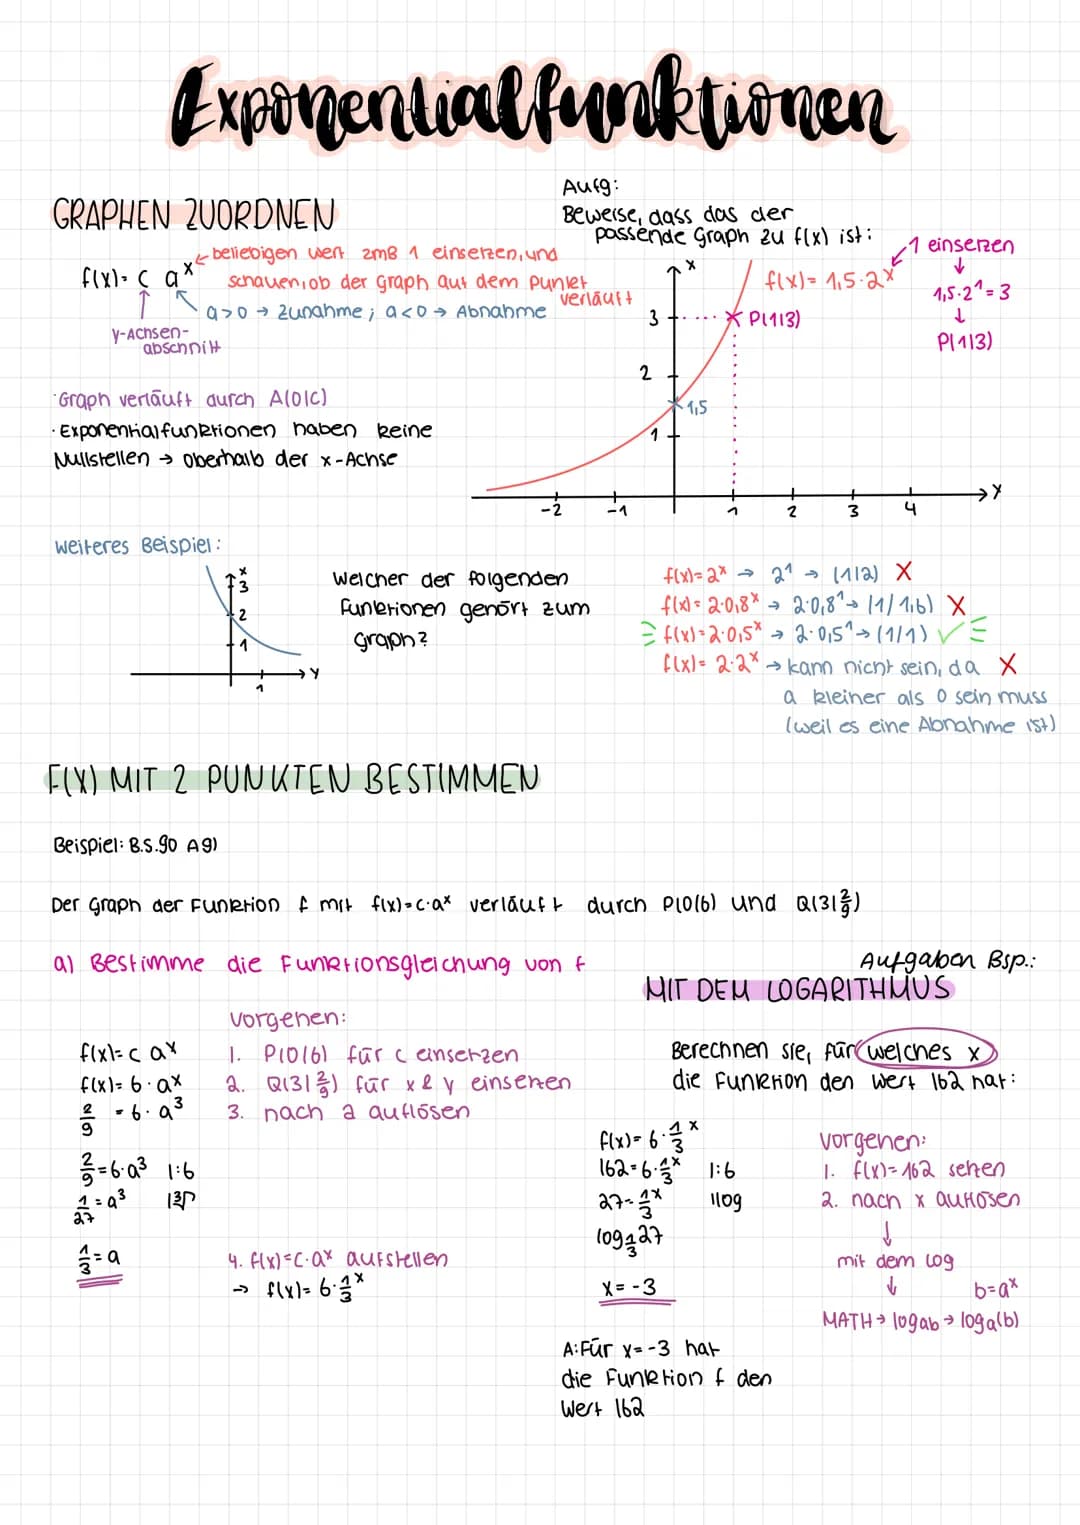 Exponentialfunktionen
GRAPHEN ZUORDNEN
f(x)= c a^x
beliebigen wert zmB 1 einsetzen, und
schauen, ob der Graph auf dem Punkt
verläuft
a>0 → Zunahme ; a<0 → Abnahme
y-Achsen-
abschnitt
·Graph verläuft durch A(0|C)
·Exponentialfunktionen haben keine
Nullstellen → oberhalb der x-Achse
Aufg:
Beweise, dass das der
passende Graph zu f(x) ist:
x
f(x)= 1,5·2^x
1 einsetzen
↓
1,5·2^1=3
↓
P(1|3)
3
P(1|3)
2
1,5
1
-2 -1 1 2 3 4
y
weiteres Beispiel:
x
3
2
1
1
y
Welcher der folgenden
Funktionen gehört zum
Graph?
f(x)=2^x → 2^1 → (1|2) X
f(x)= 2·0,8^x → 2·0,8^1 → (1/1,6) X
f(x)=2·0,5^x → 2·0,5^1 → (1/1) ✓
f(x)= 2·2^x → kann nicht sein, da X
a kleiner als 0 sein muss
(weil es eine Abnahme ist)
F(X) MIT 2 PUNKTEN BESTIMMEN
Beispiel: B.S.90 A9)
Der Graph der Funktion f mit f(x)=c·a^x verläuft durch P(0|6) und Q(3|2/9)
a) Bestimme die Funktionsgleichung von f
Vorgehen:
f(x)= c a^x
1. P(0|6) für c einsetzen
f(x)= 6·a^x
2. Q(3|2/9) für x & y einsetzen
2/9 = 6·a^3
3. nach a auflösen
2/9=6·a^3 |:6
1/27=a^3 |³√
1/3=a
4. f(x)=c·a^x aufstellen
→ f(x)= 6·1/3^x
Aufgaben Bsp.:
MIT DEM LOGARITHMUS
Berechnen sie, für welches x
die Funktion den Wert 162 hat:
f(x)= 6·1/3^x
162=6·1/3^x |:6
27=1/3^x |log
log1/3 27
x= -3
Vorgehen:
1. f(x)=162 setzen
2. nach x auflösen
↓
mit dem log
↓
b=a^x
MATH → logab → loga(b)
A: Für x=-3 hat
die Funktion f den
Wert 162